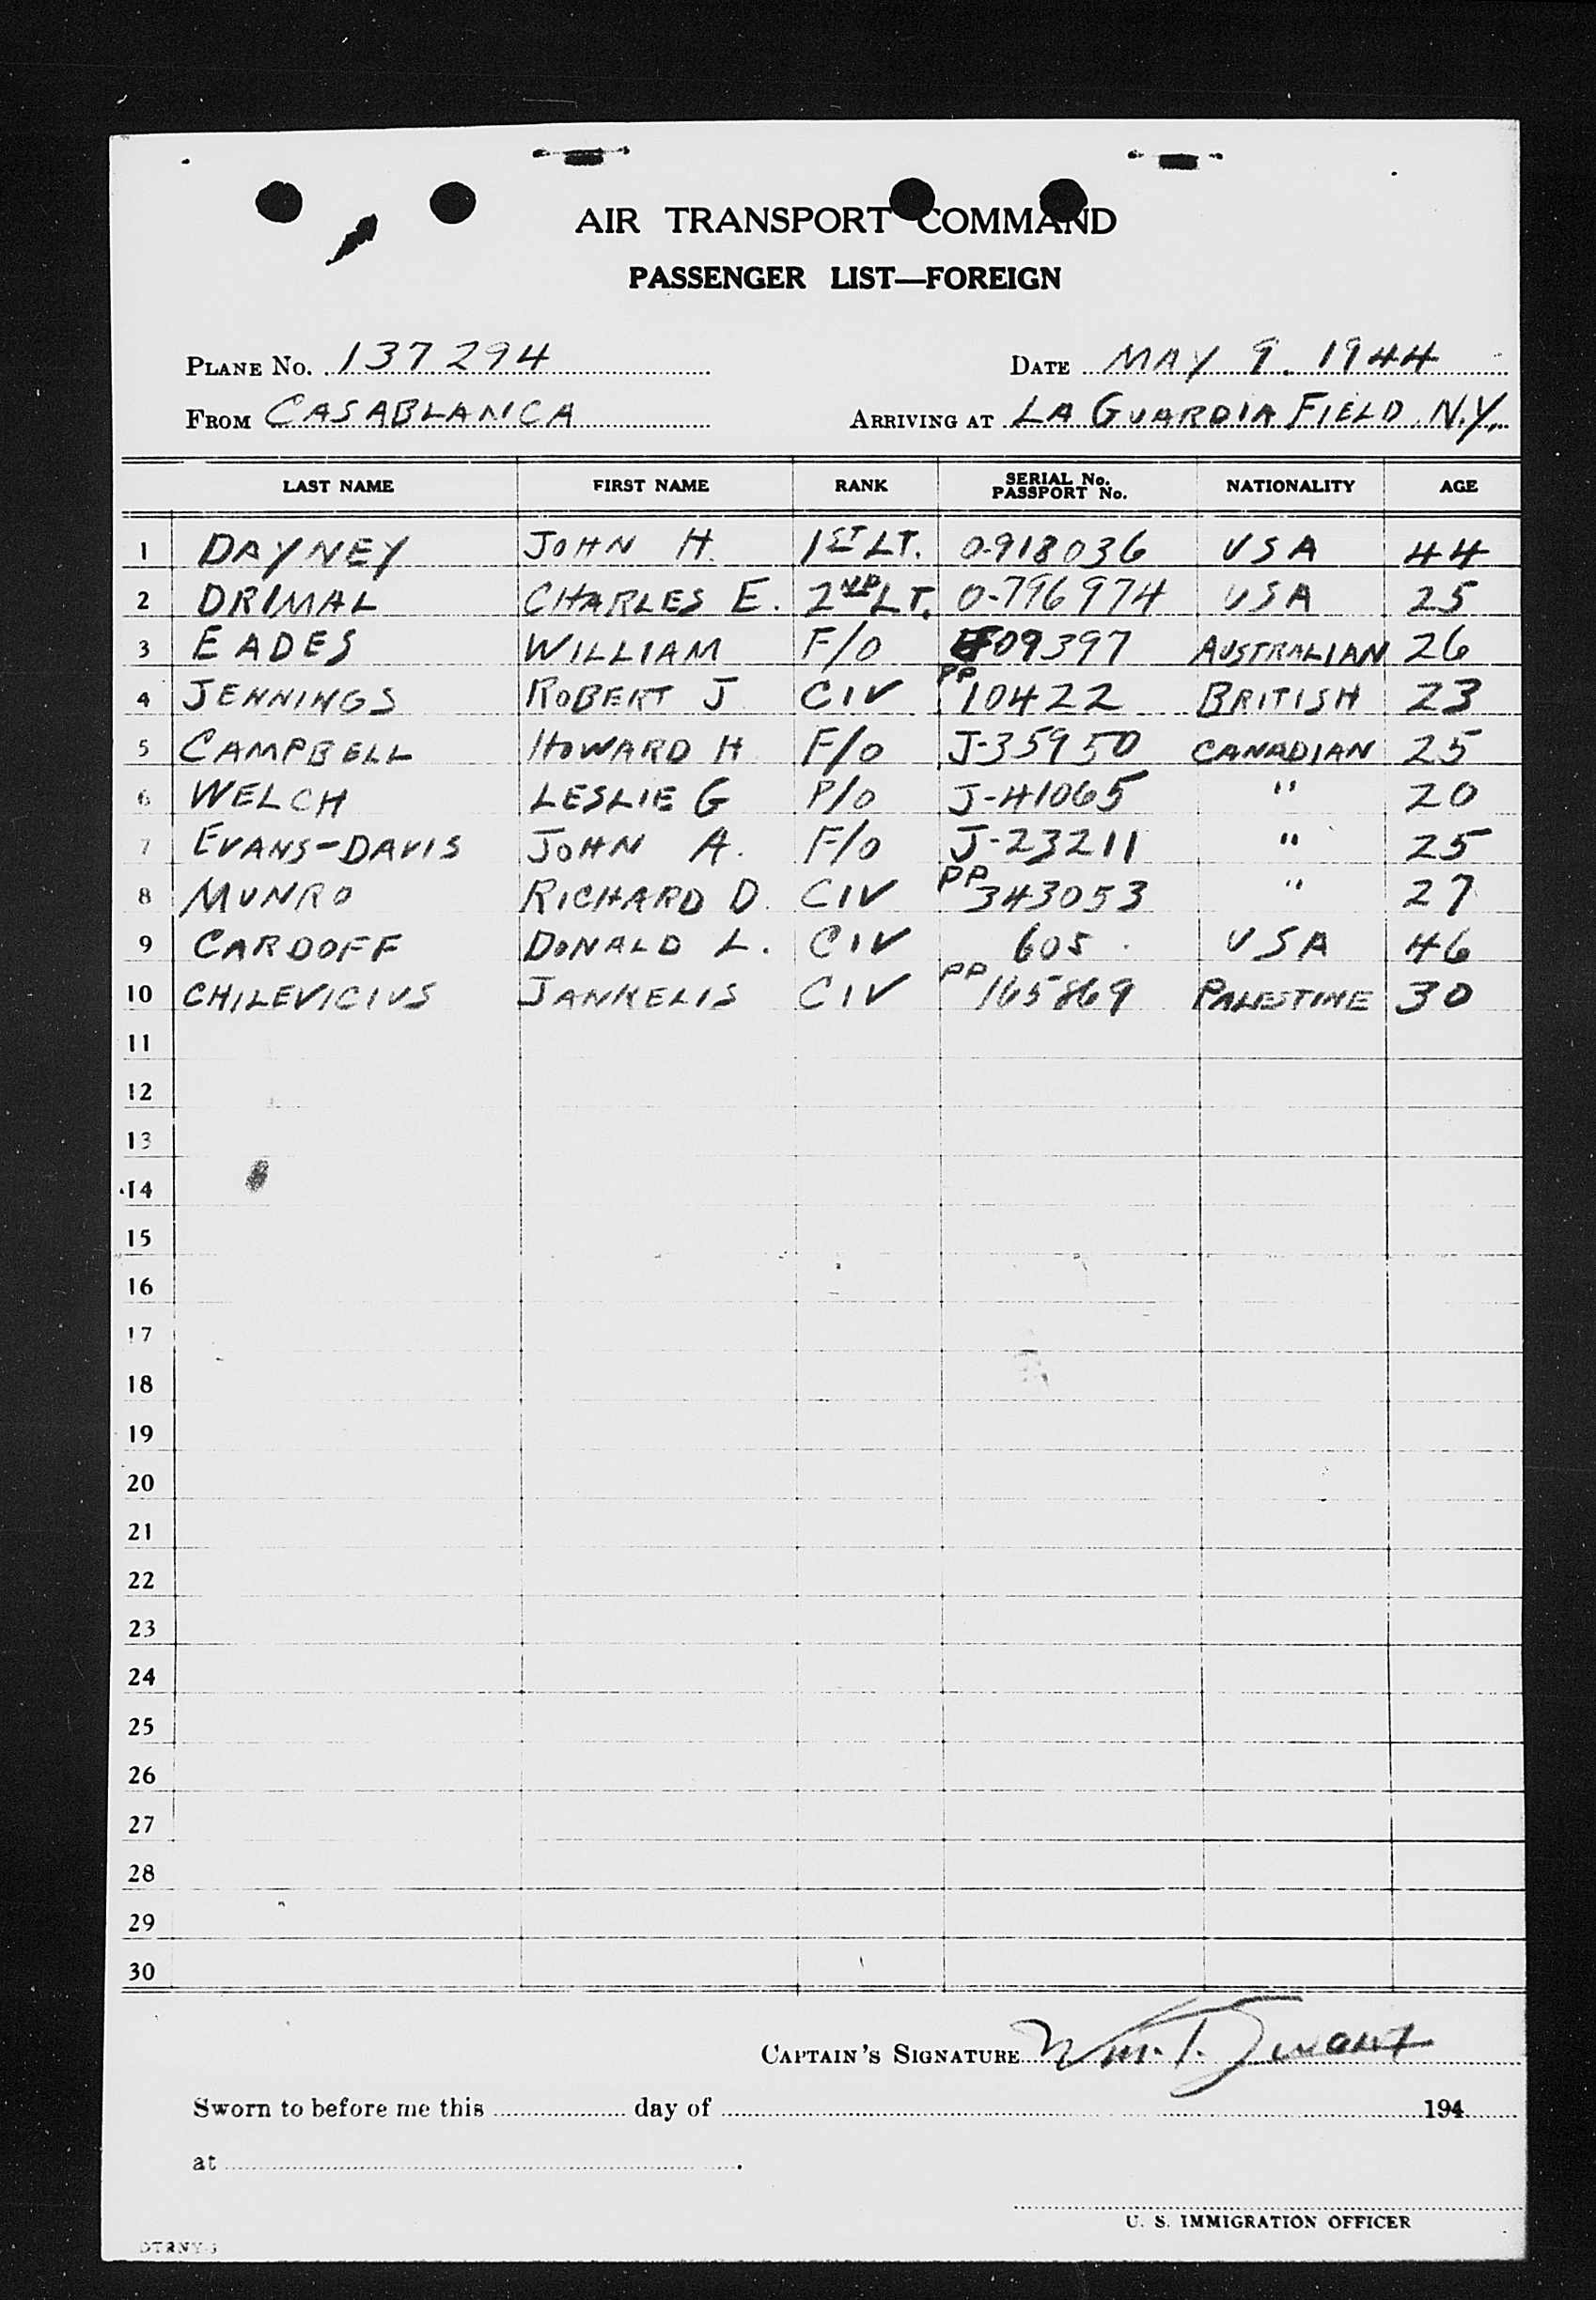 AIR TRANSPORT COMMAND
PASSENGER LIST—FOREIGN
PLANE No. 137294 DATE MAY 9. 1944
FROM CASABLANCA ARRIVING AT LA GUARDIA FIELD N.Y.
LAST NAME FIRST NAME RANK SERIAL No. PASSPORT No. NATIONALITY AGE
1 DAYNEY JOHN H. 1ST LT. O-918036 USA 44
2 DRIMAL CHARLES E. 2ND LT. O-796974 USA 25
3 EADES WILLIAM F/O 409397 AUSTRALIAN 26
4 JENNINGS ROBERT J CIV PP 10422 BRITISH 23
5 CAMPBELL HOWARD H F/O J-35950 CANADIAN 25
6 WELCH LESLIE G P/O J-41065 " 20
7 EVANS-DAVIS JOHN A. F/O J-23211 " 25
8 MUNRO RICHARD D. CIV PP 343053 " 27
9 CARDOFF DONALD L. CIV 605 USA 46
10 CHILEVICIUS JANKELIS CIV PP 165869 PALESTINE 30
11
12
13
14
15
16
17
18
19
20
21
22
23
24
25
26
27
28
29
30
CAPTAIN'S SIGNATURE Wm. T.
Sworn to before me this day of 194
at
U. S. IMMIGRATION OFFICER